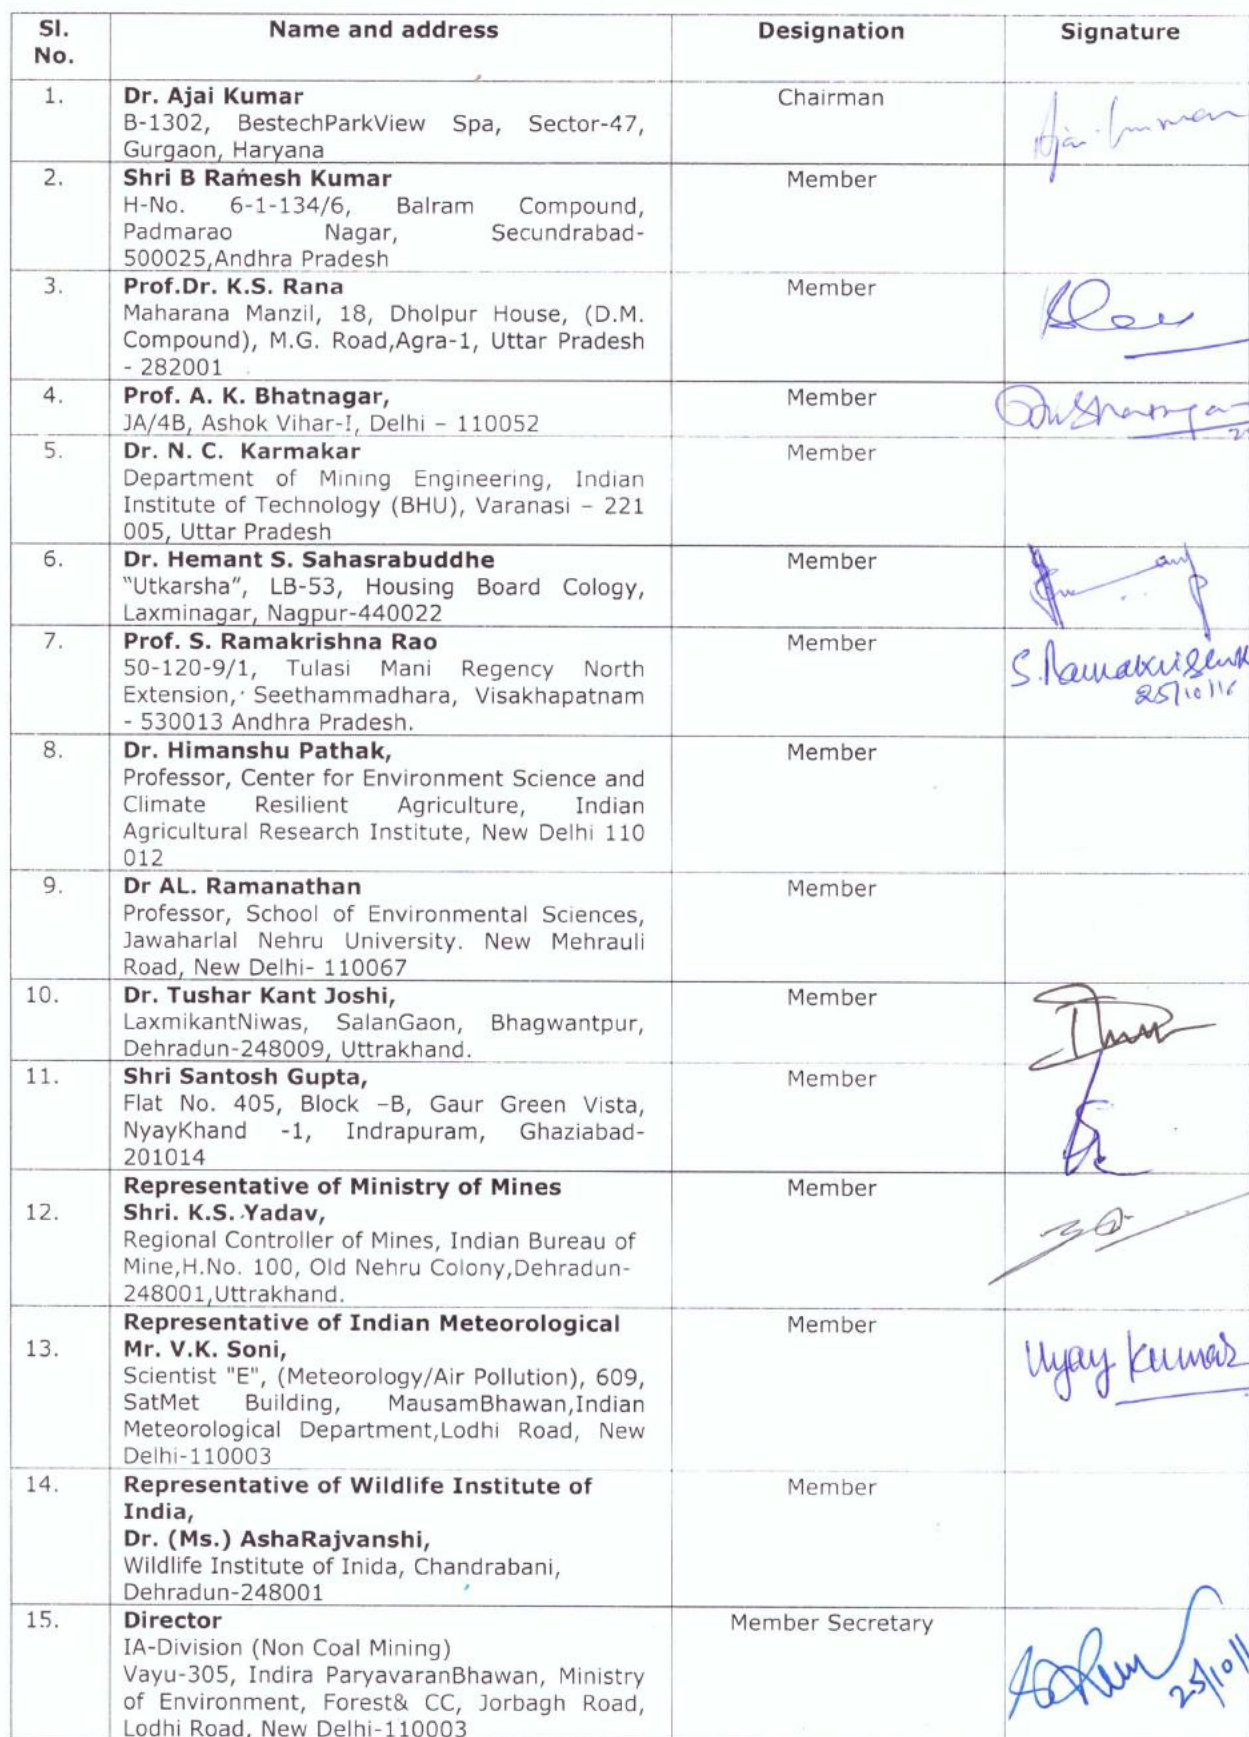 Sl. No. Name and address Designation Signature
1. Dr. Ajai Kumar Chairman
B-1302, BestechParkView Spa, Sector-47,
Gurgaon, Haryana
2. Shri B Ramesh Kumar Member
H-No. 6-1-134/6, Balram Compound,
Padmarao Nagar, Secundrabad-
500025,Andhra Pradesh
3. Prof.Dr. K.S. Rana Member
Maharana Manzil, 18, Dholpur House, (D.M.
Compound), M.G. Road,Agra-1, Uttar Pradesh
- 282001
4. Prof. A. K. Bhatnagar, Member
JA/4B, Ashok Vihar-I, Delhi – 110052
5. Dr. N. C. Karmakar Member
Department of Mining Engineering, Indian
Institute of Technology (BHU), Varanasi – 221
005, Uttar Pradesh
6. Dr. Hemant S. Sahasrabuddhe Member
“Utkarsha”, LB-53, Housing Board Cology,
Laxminagar, Nagpur-440022
7. Prof. S. Ramakrishna Rao Member
50-120-9/1, Tulasi Mani Regency North
Extension, Seethammadhara, Visakhapatnam
- 530013 Andhra Pradesh.
25/10/16
8. Dr. Himanshu Pathak, Member
Professor, Center for Environment Science and
Climate Resilient Agriculture, Indian
Agricultural Research Institute, New Delhi 110
012
9. Dr AL. Ramanathan Member
Professor, School of Environmental Sciences,
Jawaharlal Nehru University. New Mehrauli
Road, New Delhi- 110067
10. Dr. Tushar Kant Joshi, Member
LaxmikantNiwas, SalanGaon, Bhagwantpur,
Dehradun-248009, Uttrakhand.
11. Shri Santosh Gupta, Member
Flat No. 405, Block –B, Gaur Green Vista,
NyayKhand -1, Indrapuram, Ghaziabad-
201014
Representative of Ministry of Mines Member
12. Shri. K.S. Yadav,
Regional Controller of Mines, Indian Bureau of
Mine,H.No. 100, Old Nehru Colony,Dehradun-
248001,Uttrakhand.
Representative of Indian Meteorological Member
13. Mr. V.K. Soni, Vijay Kumar
Scientist "E", (Meteorology/Air Pollution), 609,
SatMet Building, MausamBhawan,Indian
Meteorological Department,Lodhi Road, New
Delhi-110003
14. Representative of Wildlife Institute of Member
India,
Dr. (Ms.) AshaRajvanshi,
Wildlife Institute of Inida, Chandrabani,
Dehradun-248001
15. Director Member Secretary
IA-Division (Non Coal Mining)
Vayu-305, Indira ParyavaranBhawan, Ministry
of Environment, Forest& CC, Jorbagh Road,
Lodhi Road, New Delhi-110003